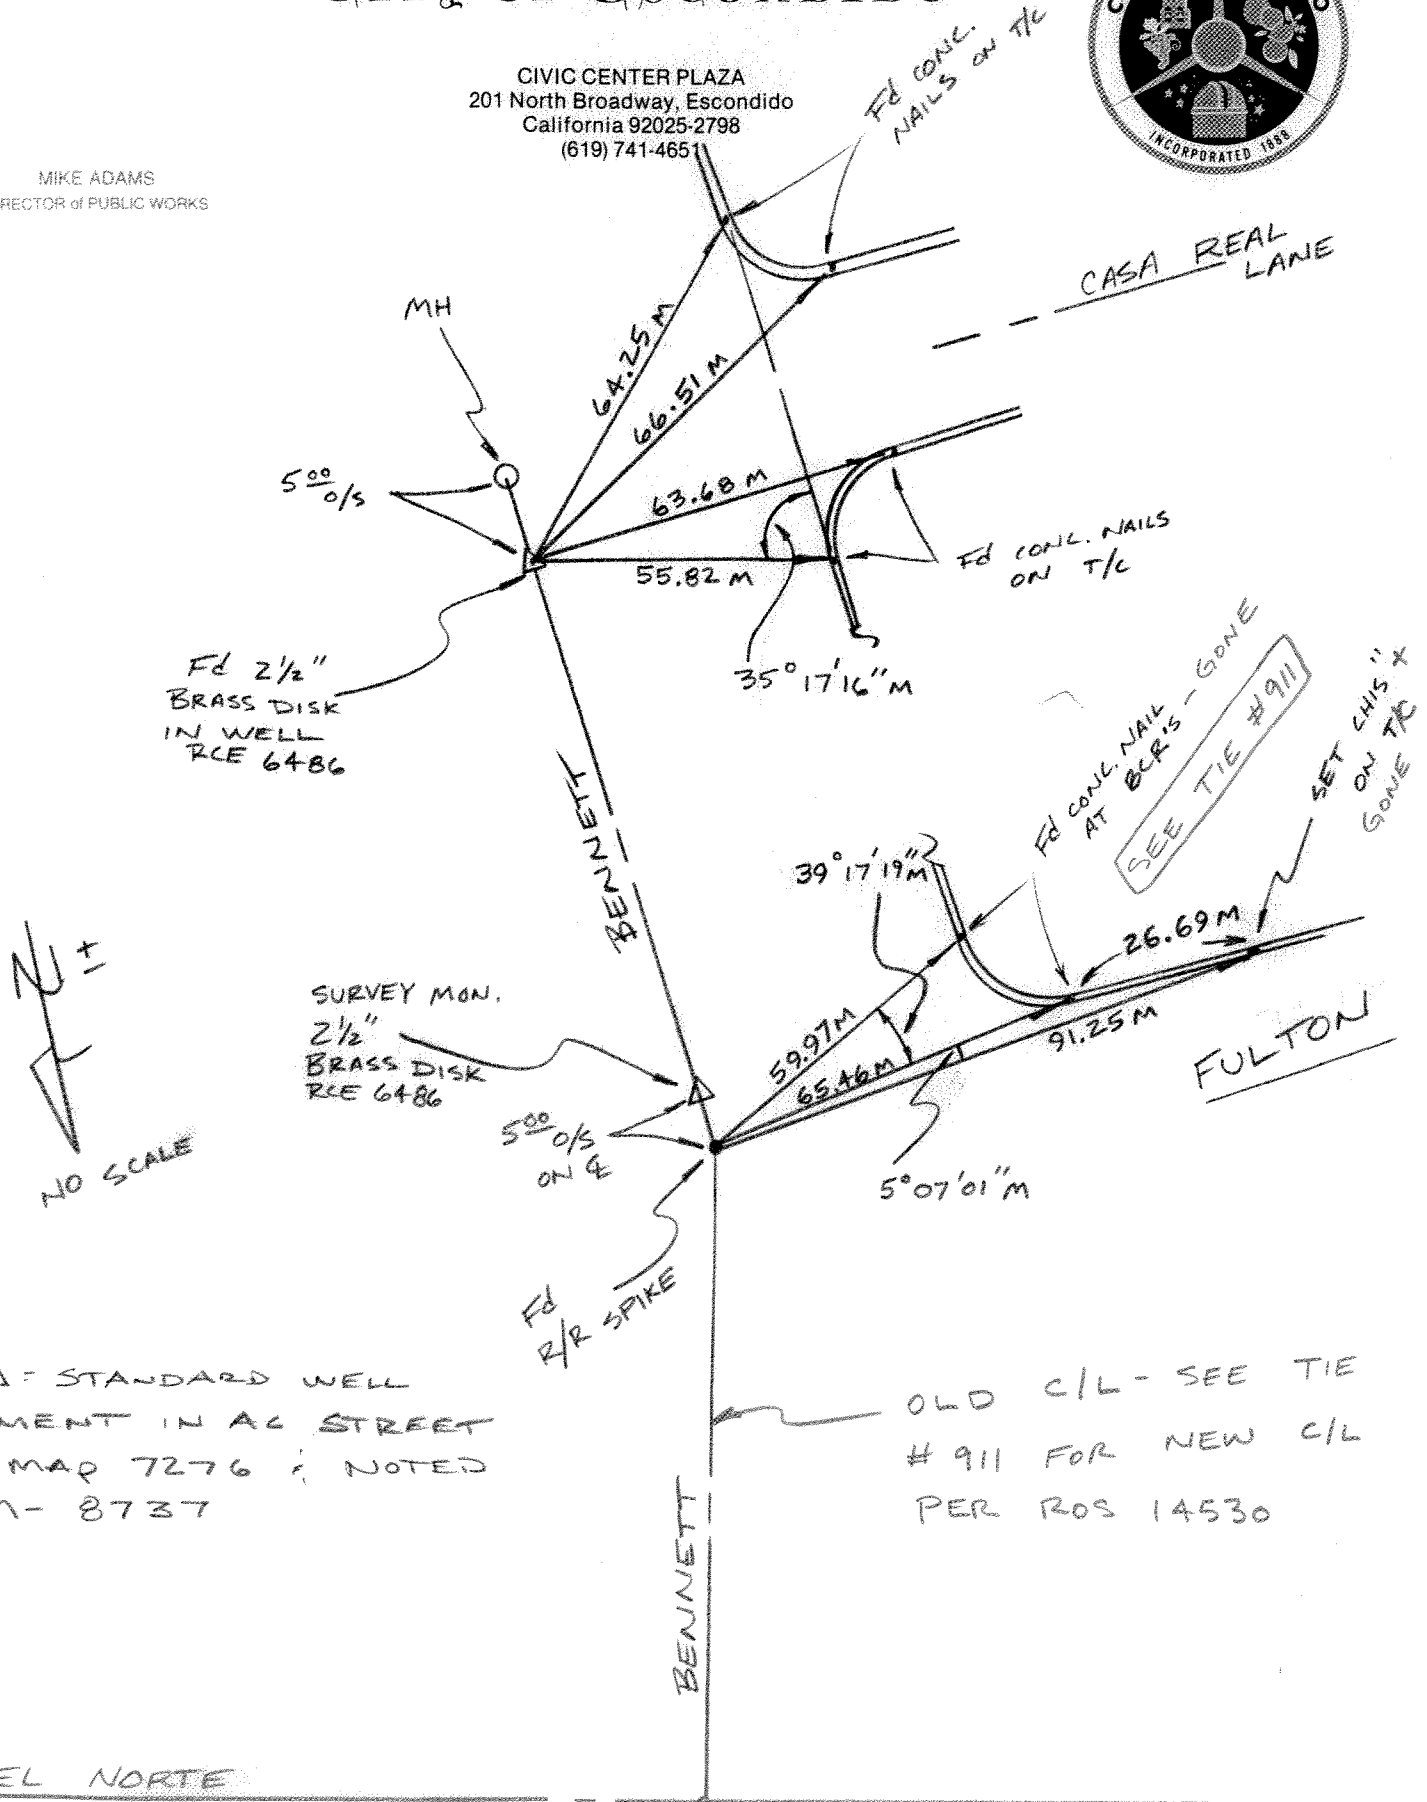 CIVIC CENTER PLAZA
201 North Broadway, Escondido
California 92025-2798
(619) 741-4651
INCORPORATED 1888
MIKE ADAMS
RECTOR of PUBLIC WORKS
Fd CONC.
NAILS ON T/C
CASA REAL
LANE
MH
64.25 M
66.51 M
5 00 O/S
63.68 M
55.82 M
Fd CONC. NAILS
ON T/C
35° 17' 16" M
Fd 2 1/2"
BRASS DISK
IN WELL
RCE 6486
BENNETT
Fd CONC. NAIL
AT BCR'S - GONE
SEE TIE #911
SET CHIS "X
ON T/C
GONE
39° 17' 19" M
26.69 M
N ±
NO SCALE
SURVEY MON.
2 1/2"
BRASS DISK
RCE 6486
59.97 M
65.46 M
91.25 M
FULTON
5 00 O/S
ON ℄
5° 07' 01" M
Fd
R/R SPIKE
= STANDARD WELL
MENT IN AC STREET
MAP 7276 & NOTED
8737
OLD C/L - SEE TIE
# 911 FOR NEW C/L
PER ROS 14530
BENNETT
EL NORTE